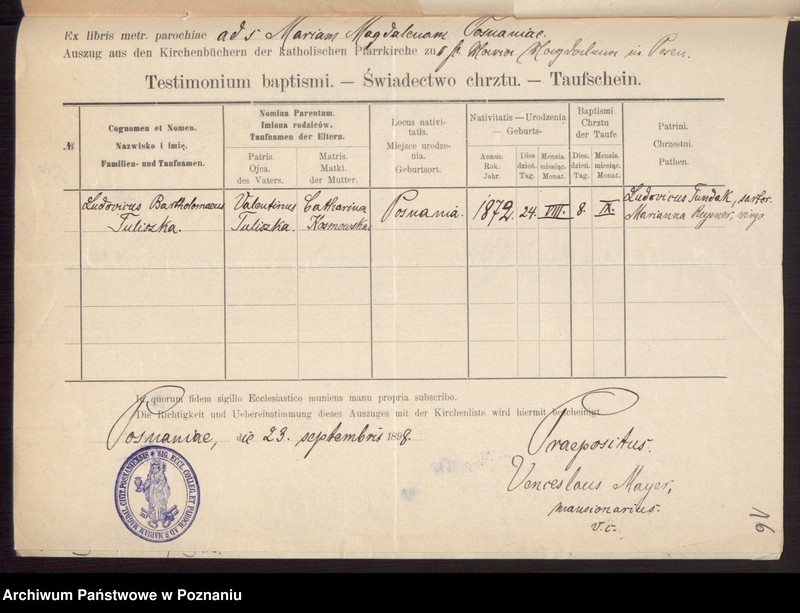 Ex libris metr. parochiae ad s Mariam Magdalenam Posnaniae.
Auszug aus den Kirchenbüchern der katholischen Pfarrkirche zu Maria Magdalena in Posen.
Testimonium baptismi. — Świadectwo chrztu. — Taufschein.
№
Cognomen et Nomen.
Nazwisko i imię.
Familien- und Taufnamen.
Nomina Parentum.
Imiona rodziców.
Taufnamen der Eltern.
Patris.
Ojca.
des Vaters.
Matris.
Matki.
der Mutter.
Locus nativi-
tatis.
Miejsce urodze-
nia.
Geburtsort.
Nativitatis — Urodzenia
— Geburts-
Annus.
Rok.
Jahr.
Dies
dzień.
Tag.
Mensis.
miesiąc.
Monat.
Baptismi
Chrztu
der Taufe
Dies.
dzień.
Tag.
Mensis.
miesiąc.
Monat.
Patrini.
Chrzestni.
Pathen.
Ludovicus Bartholomaeus
Tuliszka.
Valentinus
Tuliszka.
Catharina
Kosmowska
Posnania.
1872.
24.
VIII.
8.
IX.
Ludovicus Tundak, sartor.
Marianna Reysner, virgo
In quorum fidem sigillo Ecclesiastico muniens manu propria subscribo.
Die Richtigkeit und Uebereinstimmung dieses Auszuges mit der Kirchenliste wird hiermit bescheinigt
Posnaniae, die 23. septembris 1898.
Praepositus.
Venceslaus Mayer,
mansionarius.
v.c.
16
Archiwum Państwowe w Poznaniu